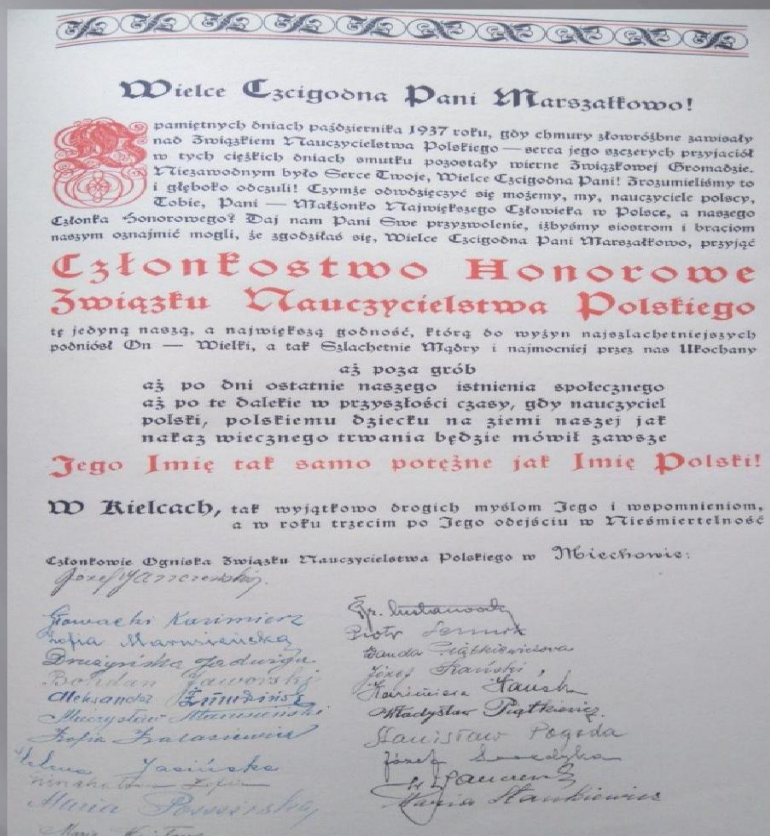 Wielce Czcigodna Pani Marszałkowo!
W pamiętnych dniach października 1937 roku, gdy chmury złowróżbne zawisały
nad Związkiem Nauczycielstwa Polskiego — serca jego szczerych przyjaciół
w tych ciężkich dniach smutku pozostały wierne Związkowej Gromadzie.
Niezawodnym było Serce Twoje, Wielce Czcigodna Pani! Zrozumieliśmy to
i głęboko odczuli! Czymże odwdzięczyć się możemy, my, nauczyciele polscy,
Tobie, Pani — Małżonko Największego Człowieka w Polsce, a naszego
Członka Honorowego? Daj nam Pani Swe przyzwolenie, iżbyśmy siostrom i braciom
naszym oznajmić mogli, że zgodziłaś się, Wielce Czcigodna Pani Marszałkowo, przyjąć
Członkostwo Honorowe
Związku Nauczycielstwa Polskiego
tę jedyną naszą, a największą godność, którą do wyżyn najszlachetniejszych
podniósł On — Wielki, a tak Szlachetnie Mądry i najmocniej przez nas Ukochany
aż poza grób
aż po dni ostatnie naszego istnienia społecznego
aż po te dalekie w przyszłości czasy, gdy nauczyciel
polski, polskiemu dziecku na ziemi naszej jak
nakaz wiecznego trwania będzie mówił zawsze
Jego Imię tak samo potężne jak Imię Polski!
W Kielcach, tak wyjątkowo drogich myślom Jego i wspomnieniom,
a w roku trzecim po Jego odejściu w Nieśmiertelność
Członkowie Ogniska Związku Nauczycielstwa Polskiego w Miechowie:
Józef
Głowacki Kazimierz
Zofia
Drużyńska Jadwiga
Bohdan Jaworski
Aleksandra
Mieczysław
Zofia
Jasińska
Maria
Maria
Piotr
Wanda Piątkiewiczowa
Józef Kański
Kazimiera Kańska
Władysław Piątkiewicz
Stanisław Pogoda
Józef
Maria Stankiewicz